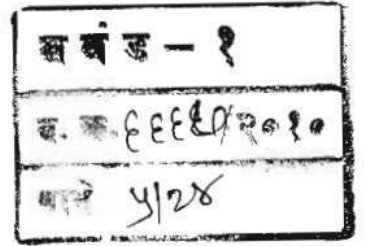 सबंड - १
द. क्र. ६६६६/२०१०
पाने ५/२४